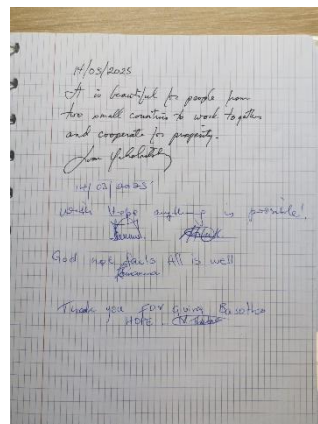 14/03/2025
It is beautiful for people from
two small countries to work together
and cooperate for prosperity.
14/03/2025
With Hope anything is possible!
God never fails All is well
Thank you For Giving Basotho
HOPE.